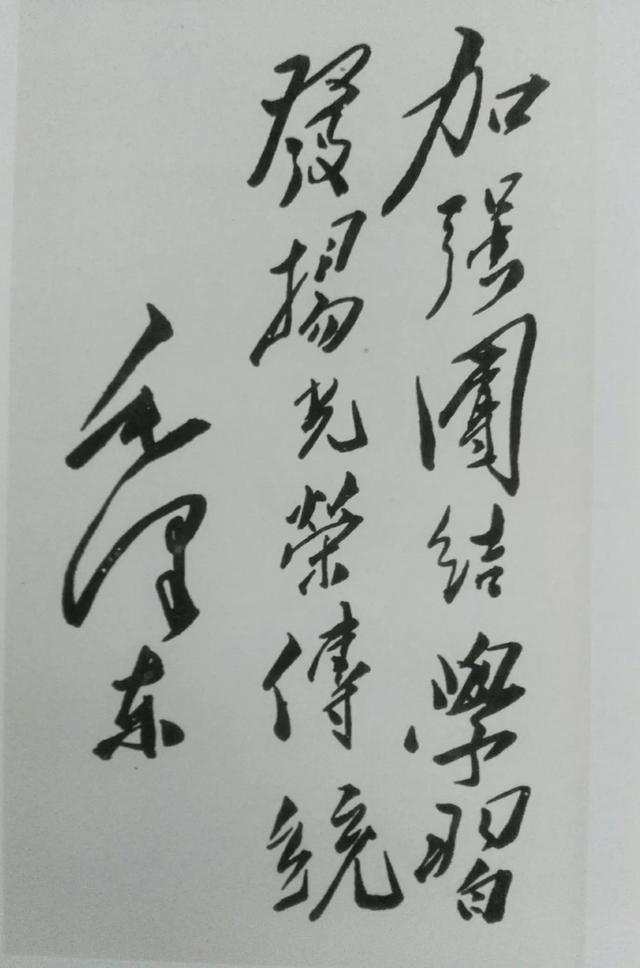 加强團結學習
發揚光榮傳統
毛澤东